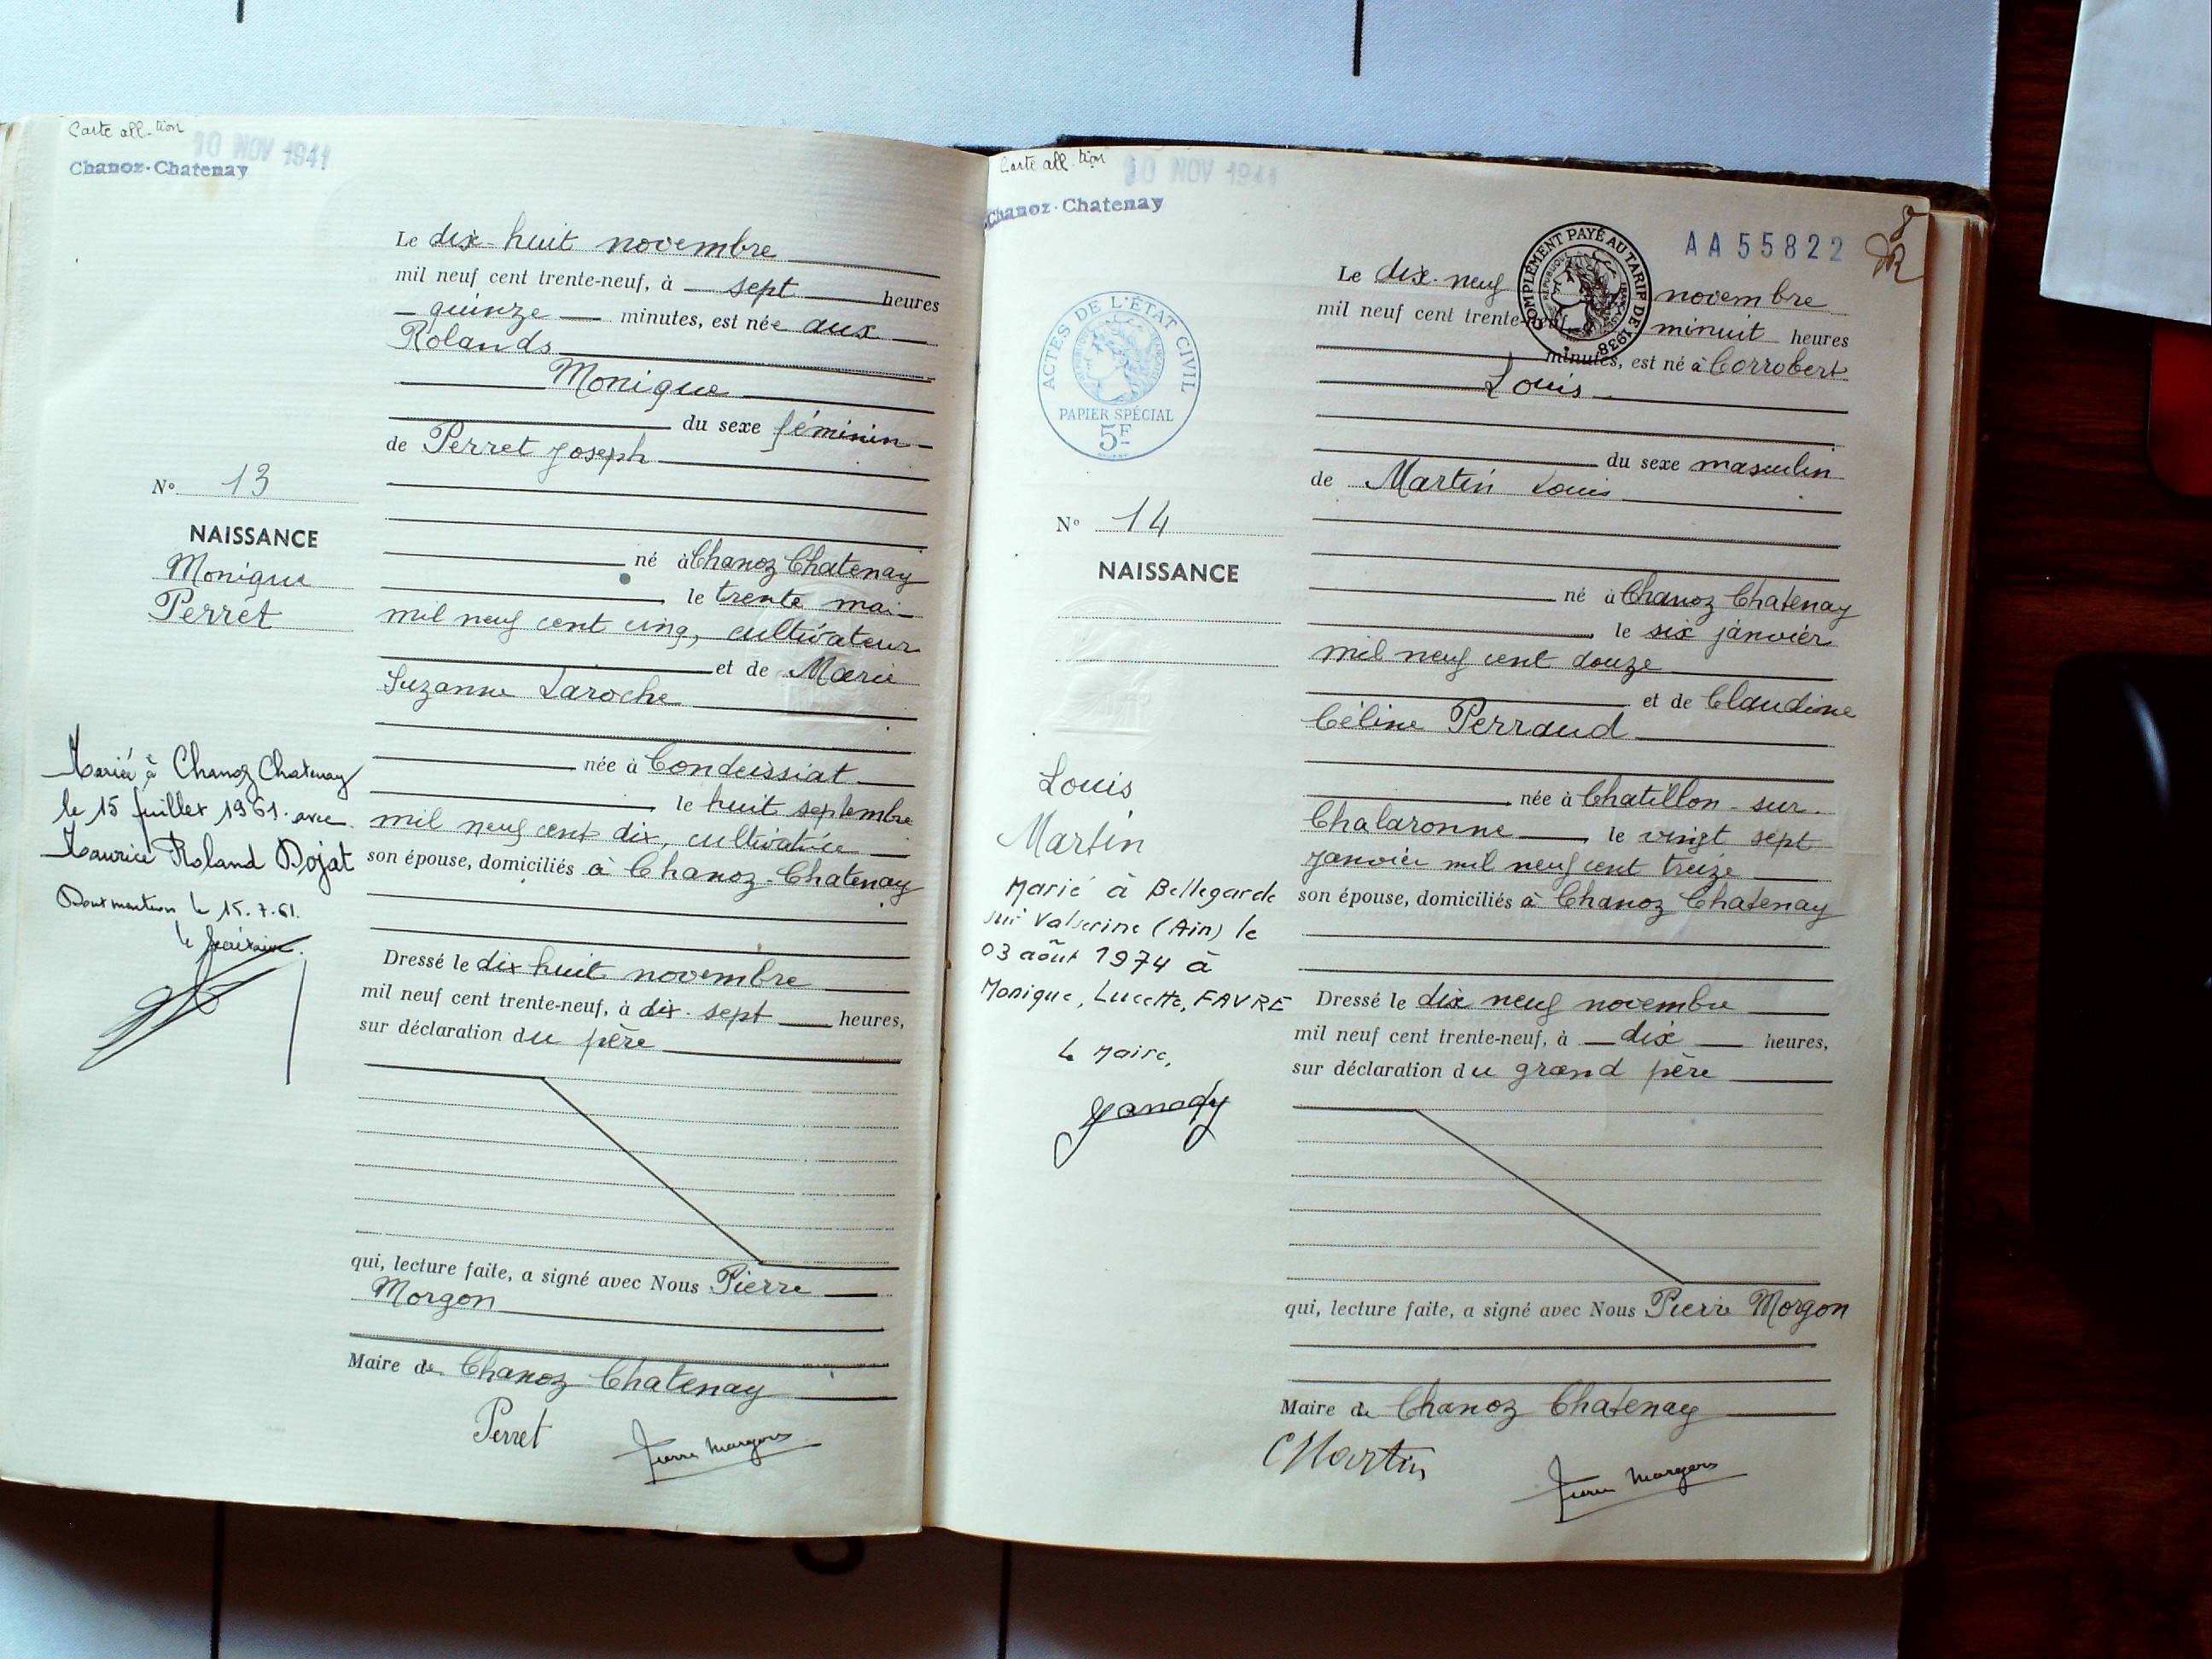 Carte all-tion
10 NOV 1941
Chanoz-Chatenay
Le dix-huit novembre
mil neuf cent trente-neuf, à sept heures
quinze minutes, est née aux
Rolands
Monique
du sexe féminin
de Perret Joseph
né à Chanoz Chatenay
le trente mai
mil neuf cent cinq, cultivateur
et de Marie
Suzanne Laroche
née à Condeissiat
le huit septembre
mil neuf cent dix, cultivatrice
son épouse, domiciliés à Chanoz-Chatenay
Dressé le dix huit novembre
mil neuf cent trente-neuf, à dix-sept heures,
sur déclaration du père
qui, lecture faite, a signé avec Nous Pierre
Morgon
Maire de Chanoz Chatenay
Perret
Pierre Morgon
N° 13
NAISSANCE
Monique
Perret
Mariée à Chanoz Chatenay
le 15 juillet 1961 avec
Maurice Roland Dojat
le 15.7.61.
le secrétaire.
Carte all-tion
10 NOV 1941
Chanoz-Chatenay
AA55822
8
COMPLÉMENT PAYÉ AU TARIF DE 1938
ACTES DE L'ÉTAT CIVIL
PAPIER SPÉCIAL
5F
Le dix-neuf novembre
mil neuf cent trente-neuf, minuit heures
minutes, est né à Corrobert
Louis
du sexe masculin
de Martin Louis
né à Chanoz Chatenay
le six janvier
mil neuf cent douze
et de Claudine
Céline Perraud
née à Chatillon-sur-
Chalaronne le vingt sept
janvier mil neuf cent treize
son épouse, domiciliés à Chanoz Chatenay
Dressé le dix neuf novembre
mil neuf cent trente-neuf, à dix heures,
sur déclaration du grand père
qui, lecture faite, a signé avec Nous Pierre Morgon
Maire de Chanoz Chatenay
CMartin
Pierre Morgon
N° 14
NAISSANCE
Louis
Martin
Marié à Bellegarde
sur Valserine (Ain) le
03 août 1974 à
Monique, Lucette, FAVRE
Le Maire,